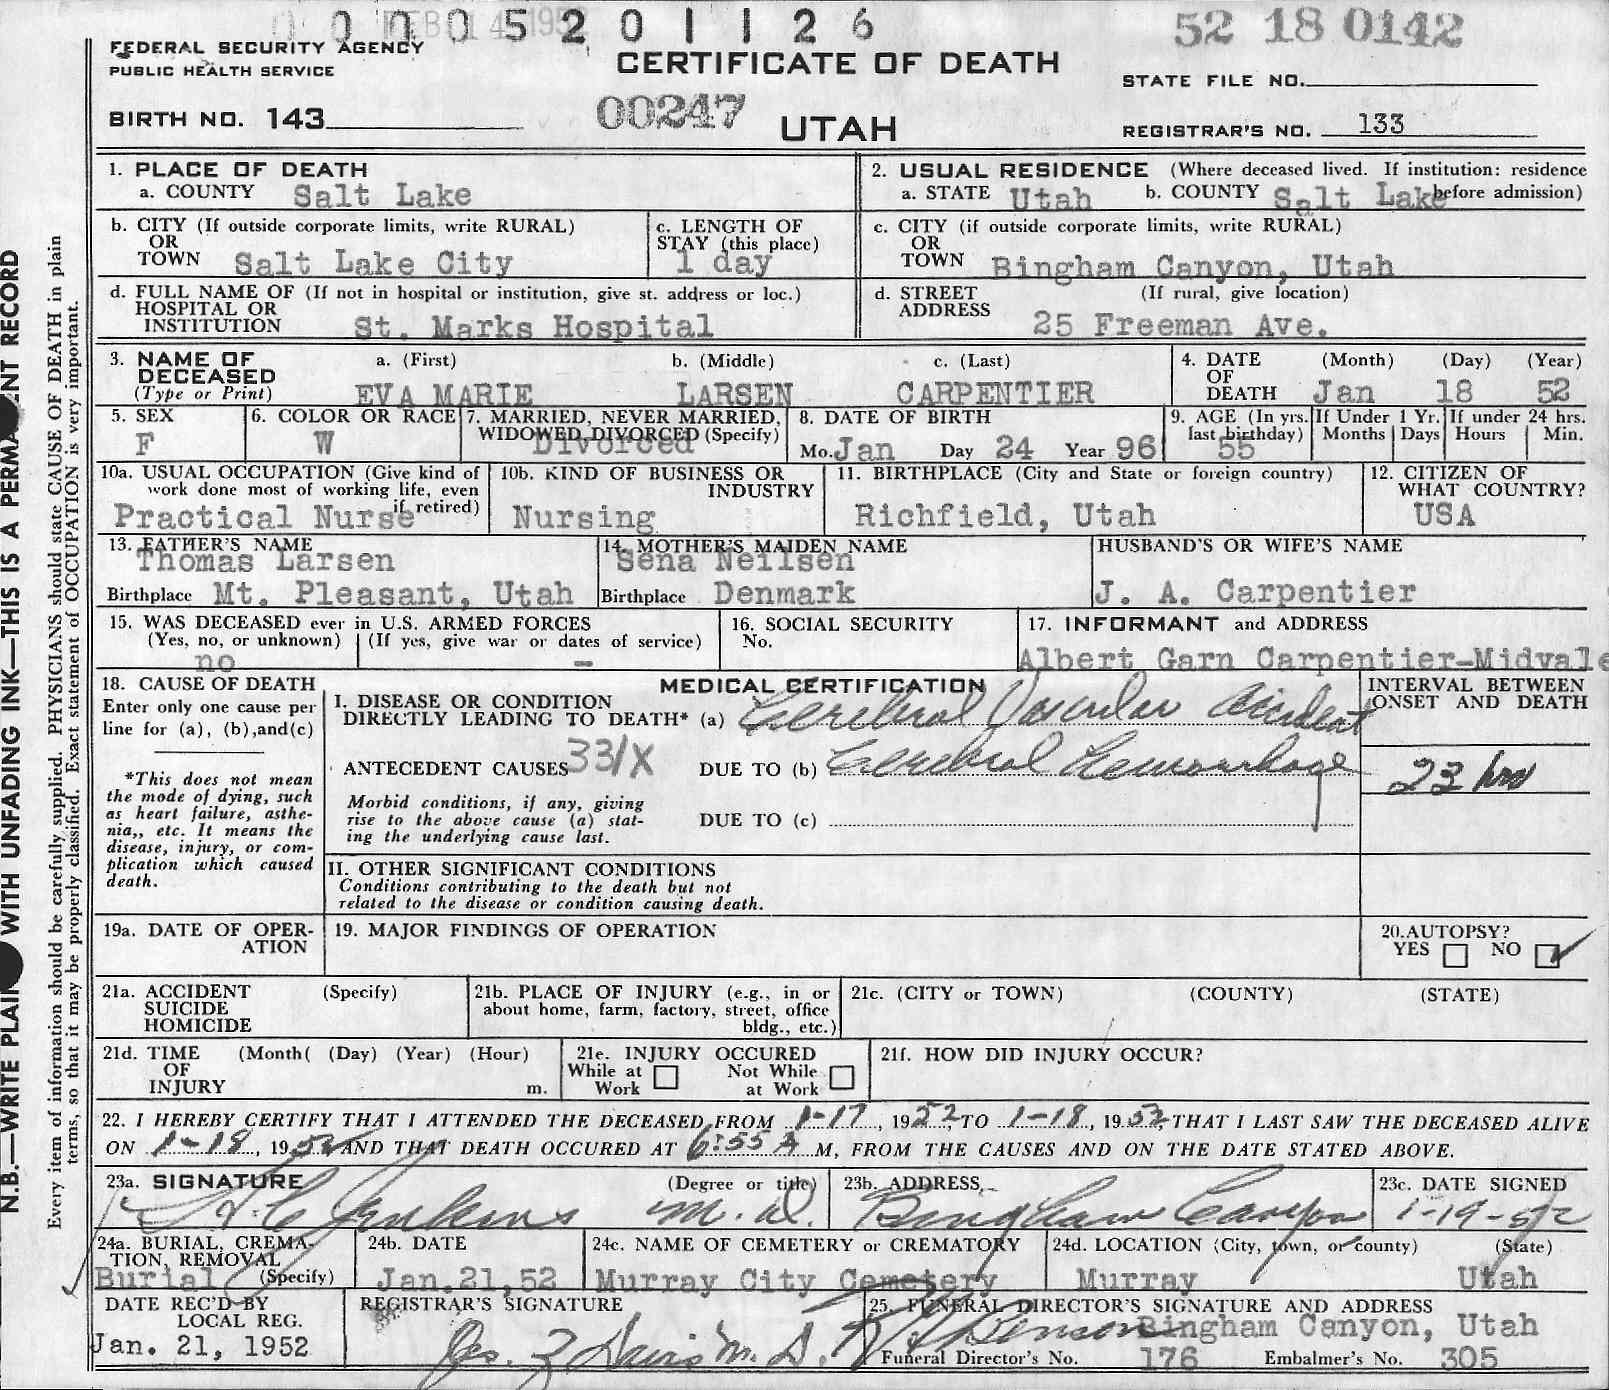 0 0 0 0 5 2 0 1 1 2 6
FEB 14 1952
52 18 0142
FEDERAL SECURITY AGENCY
PUBLIC HEALTH SERVICE
CERTIFICATE OF DEATH
STATE FILE NO.
BIRTH NO. 143
00247
UTAH
REGISTRAR'S NO. 133
1. PLACE OF DEATH
a. COUNTY Salt Lake
2. USUAL RESIDENCE (Where deceased lived. If institution: residence before admission)
a. STATE Utah b. COUNTY Salt Lake
b. CITY (If outside corporate limits, write RURAL)
OR
TOWN Salt Lake City
c. LENGTH OF
STAY (this place)
1 day
c. CITY (if outside corporate limits, write RURAL)
OR
TOWN Bingham Canyon, Utah
d. FULL NAME OF (If not in hospital or institution, give st. address or loc.)
HOSPITAL OR
INSTITUTION St. Marks Hospital
d. STREET (If rural, give location)
ADDRESS 25 Freeman Ave.
3. NAME OF DECEASED
(Type or Print)
a. (First) b. (Middle) c. (Last)
EVA MARIE LARSEN CARPENTIER
4. DATE OF DEATH (Month) (Day) (Year)
Jan 18 52
5. SEX
F
6. COLOR OR RACE
W
7. MARRIED, NEVER MARRIED,
WIDOWED, DIVORCED (Specify)
Divorced
8. DATE OF BIRTH
Mo. Jan Day 24 Year 96
9. AGE (In yrs.
last birthday)
55
If Under 1 Yr.
Months Days
If under 24 hrs.
Hours Min.
10a. USUAL OCCUPATION (Give kind of
work done most of working life, even
if retired)
Practical Nurse
10b. KIND OF BUSINESS OR
INDUSTRY
Nursing
11. BIRTHPLACE (City and State or foreign country)
Richfield, Utah
12. CITIZEN OF
WHAT COUNTRY?
USA
13. FATHER'S NAME
Thomas Larsen
Birthplace Mt. Pleasant, Utah
14. MOTHER'S MAIDEN NAME
Sena Neilsen
Birthplace Denmark
HUSBAND'S OR WIFE'S NAME
J. A. Carpentier
15. WAS DECEASED ever in U.S. ARMED FORCES
(Yes, no, or unknown) (If yes, give war or dates of service)
no –
16. SOCIAL SECURITY
No.
17. INFORMANT and ADDRESS
Albert Garn Carpentier-Midvale
18. CAUSE OF DEATH
Enter only one cause per
line for (a), (b),and(c)
*This does not mean
the mode of dying, such
as heart failure, asthe-
nia,, etc. It means the
disease, injury, or com-
plication which caused
death.
MEDICAL CERTIFICATION
I. DISEASE OR CONDITION
DIRECTLY LEADING TO DEATH* (a) Cerebral Vascular Accident
ANTECEDENT CAUSES 331X DUE TO (b) Cerebral Hemorrhage
Morbid conditions, if any, giving
rise to the above cause (a) stat-
ing the underlying cause last.
DUE TO (c)
INTERVAL BETWEEN
ONSET AND DEATH
23 hrs
II. OTHER SIGNIFICANT CONDITIONS
Conditions contributing to the death but not
related to the disease or condition causing death.
19a. DATE OF OPER-
ATION
19. MAJOR FINDINGS OF OPERATION
20. AUTOPSY?
YES NO ✓
21a. ACCIDENT (Specify)
SUICIDE
HOMICIDE
21b. PLACE OF INJURY (e.g., in or
about home, farm, factory, street, office
bldg., etc.)
21c. (CITY or TOWN) (COUNTY) (STATE)
21d. TIME (Month( (Day) (Year) (Hour)
OF
INJURY m.
21e. INJURY OCCURED
While at Work Not While at Work
21f. HOW DID INJURY OCCUR?
22. I HEREBY CERTIFY THAT I ATTENDED THE DECEASED FROM 1-17, 1952, TO 1-18, 1952 THAT I LAST SAW THE DECEASED ALIVE
ON 1-18, 1952 AND THAT DEATH OCCURED AT 6:55 A M, FROM THE CAUSES AND ON THE DATE STATED ABOVE.
23a. SIGNATURE (Degree or title)
Jenkins M.D.
23b. ADDRESS
Bingham Canyon
23c. DATE SIGNED
1-19-52
24a. BURIAL, CREMA-
TION, REMOVAL
Burial (Specify)
24b. DATE
Jan.21,52
24c. NAME OF CEMETERY or CREMATORY
Murray City Cemetery
24d. LOCATION (City, town, or county) (State)
Murray Utah
DATE REC'D BY
LOCAL REG.
Jan. 21, 1952
REGISTRAR'S SIGNATURE
25. FUNERAL DIRECTOR'S SIGNATURE AND ADDRESS
Bingham Canyon, Utah
Funeral Director's No. 176 Embalmer's No. 305
N.B.—WRITE PLAIN WITH UNFADING INK—THIS IS A PERMANENT RECORD
Every item of information should be carefully supplied. PHYSICIANS should state CAUSE OF DEATH in plain
terms, so that it may be properly classified. Exact statement of OCCUPATION is very important.